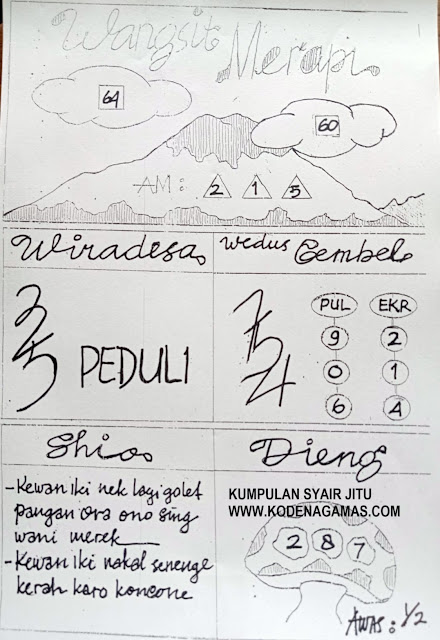 Wangsit
Merapi
64
60
AM: 2 1 5
Wiradesa
Wedus Gembel
PEDULI
PUL EKR
9 2
0 1
6 4
Shio
Dieng
- Kewan iki nek lagi golet
pangan ora ono sing
wani merek
- Kewan iki nakal senenge
kerah karo koncone
KUMPULAN SYAIR JITU
WWW.KODENAGAMAS.COM
2 8 7
AWAS: 1/2